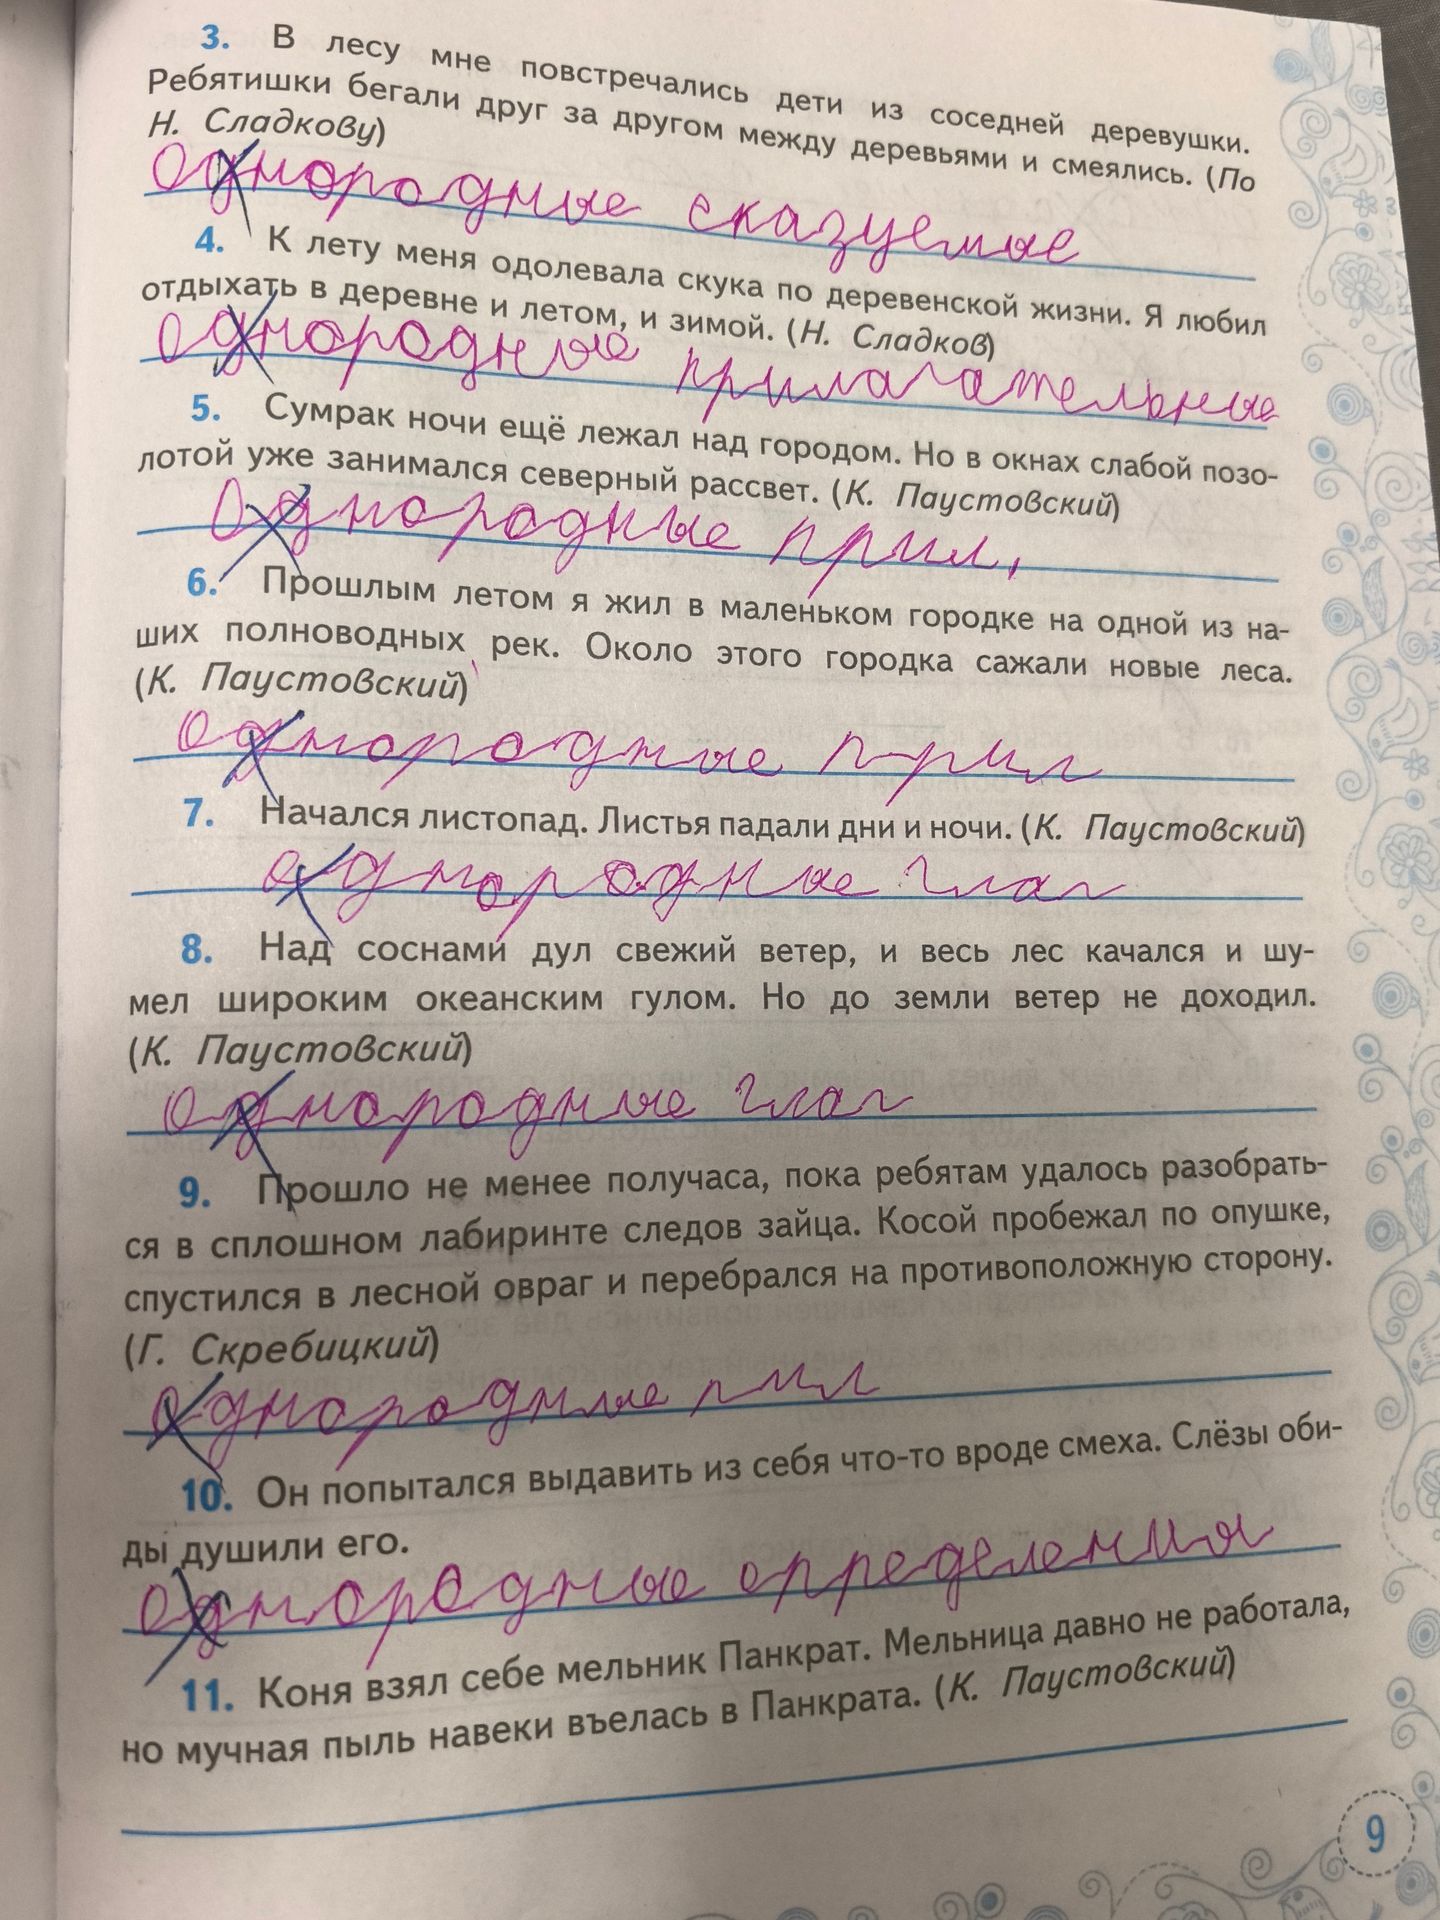 3. В лесу мне повстречались дети из соседней деревушки.
Ребятишки бегали друг за другом между деревьями и смеялись. (По
Н. Сладкову)
Однородные сказуемые
4. К лету меня одолевала скука по деревенской жизни. Я любил
отдыхать в деревне и летом, и зимой. (Н. Сладков)
однородные прилагательные
5. Сумрак ночи ещё лежал над городом. Но в окнах слабой позо-
лотой уже занимался северный рассвет. (К. Паустовский)
Однородные прил.
6. Прошлым летом я жил в маленьком городке на одной из на-
ших полноводных рек. Около этого городка сажали новые леса.
(К. Паустовский)
однородные прил
7. Начался листопад. Листья падали дни и ночи. (К. Паустовский)
однородные глаг
8. Над соснами дул свежий ветер, и весь лес качался и шу-
мел широким океанским гулом. Но до земли ветер не доходил.
(К. Паустовский)
однородные глаг
9. Прошло не менее получаса, пока ребятам удалось разобрать-
ся в сплошном лабиринте следов зайца. Косой пробежал по опушке,
спустился в лесной овраг и перебрался на противоположную сторону.
(Г. Скребицкий)
однородные
10. Он попытался выдавить из себя что-то вроде смеха. Слёзы оби-
ды душили его.
однородные определения
11. Коня взял себе мельник Панкрат. Мельница давно не работала,
но мучная пыль навеки въелась в Панкрата. (К. Паустовский)
9